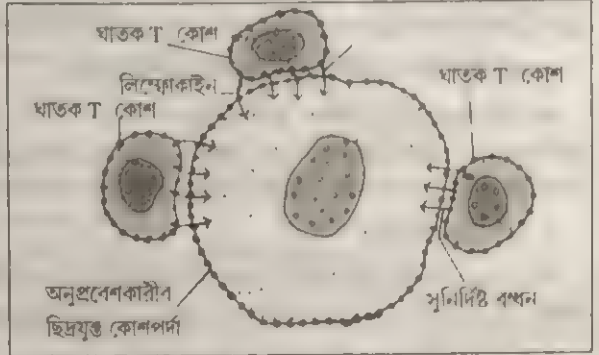 ঘাতক T কোশ
লিম্ফোকাইন
ঘাতক T কোশ
ঘাতক T কোশ
অনুপ্রবেশকারীব
ছিদ্রযুক্ত কোশপর্দা
সুনির্দিষ্ট বন্ধন